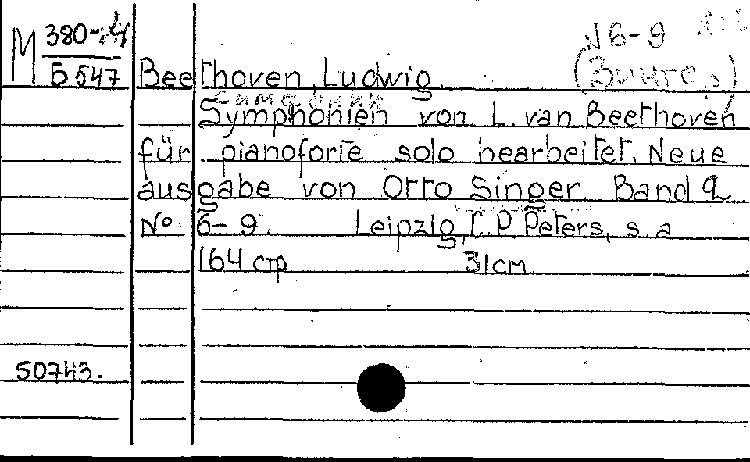 N 6-9
M 380-4
Б 547 Beethoven, Ludwig (Зингер)
Symphonien von L. van Beethoven
für pianoforte solo bearbeitet. Neue
ausgabe von Otto Singer Band 2
№ 6-9. Leipzig, C. P. Peters, s. a
164 стр 31 см
50743.